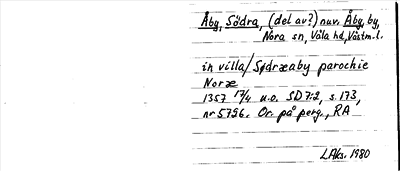 Åby, Södra, (del av?) nuv. Åby, by,
Nora sn, Våla hd, Västm.l.
in villa/Sødræaby parochie
Noræ
1357 17/4 u.o. SD 7:2, s. 173,
nr 5796. Or. på perg., RA
LAks. 1980